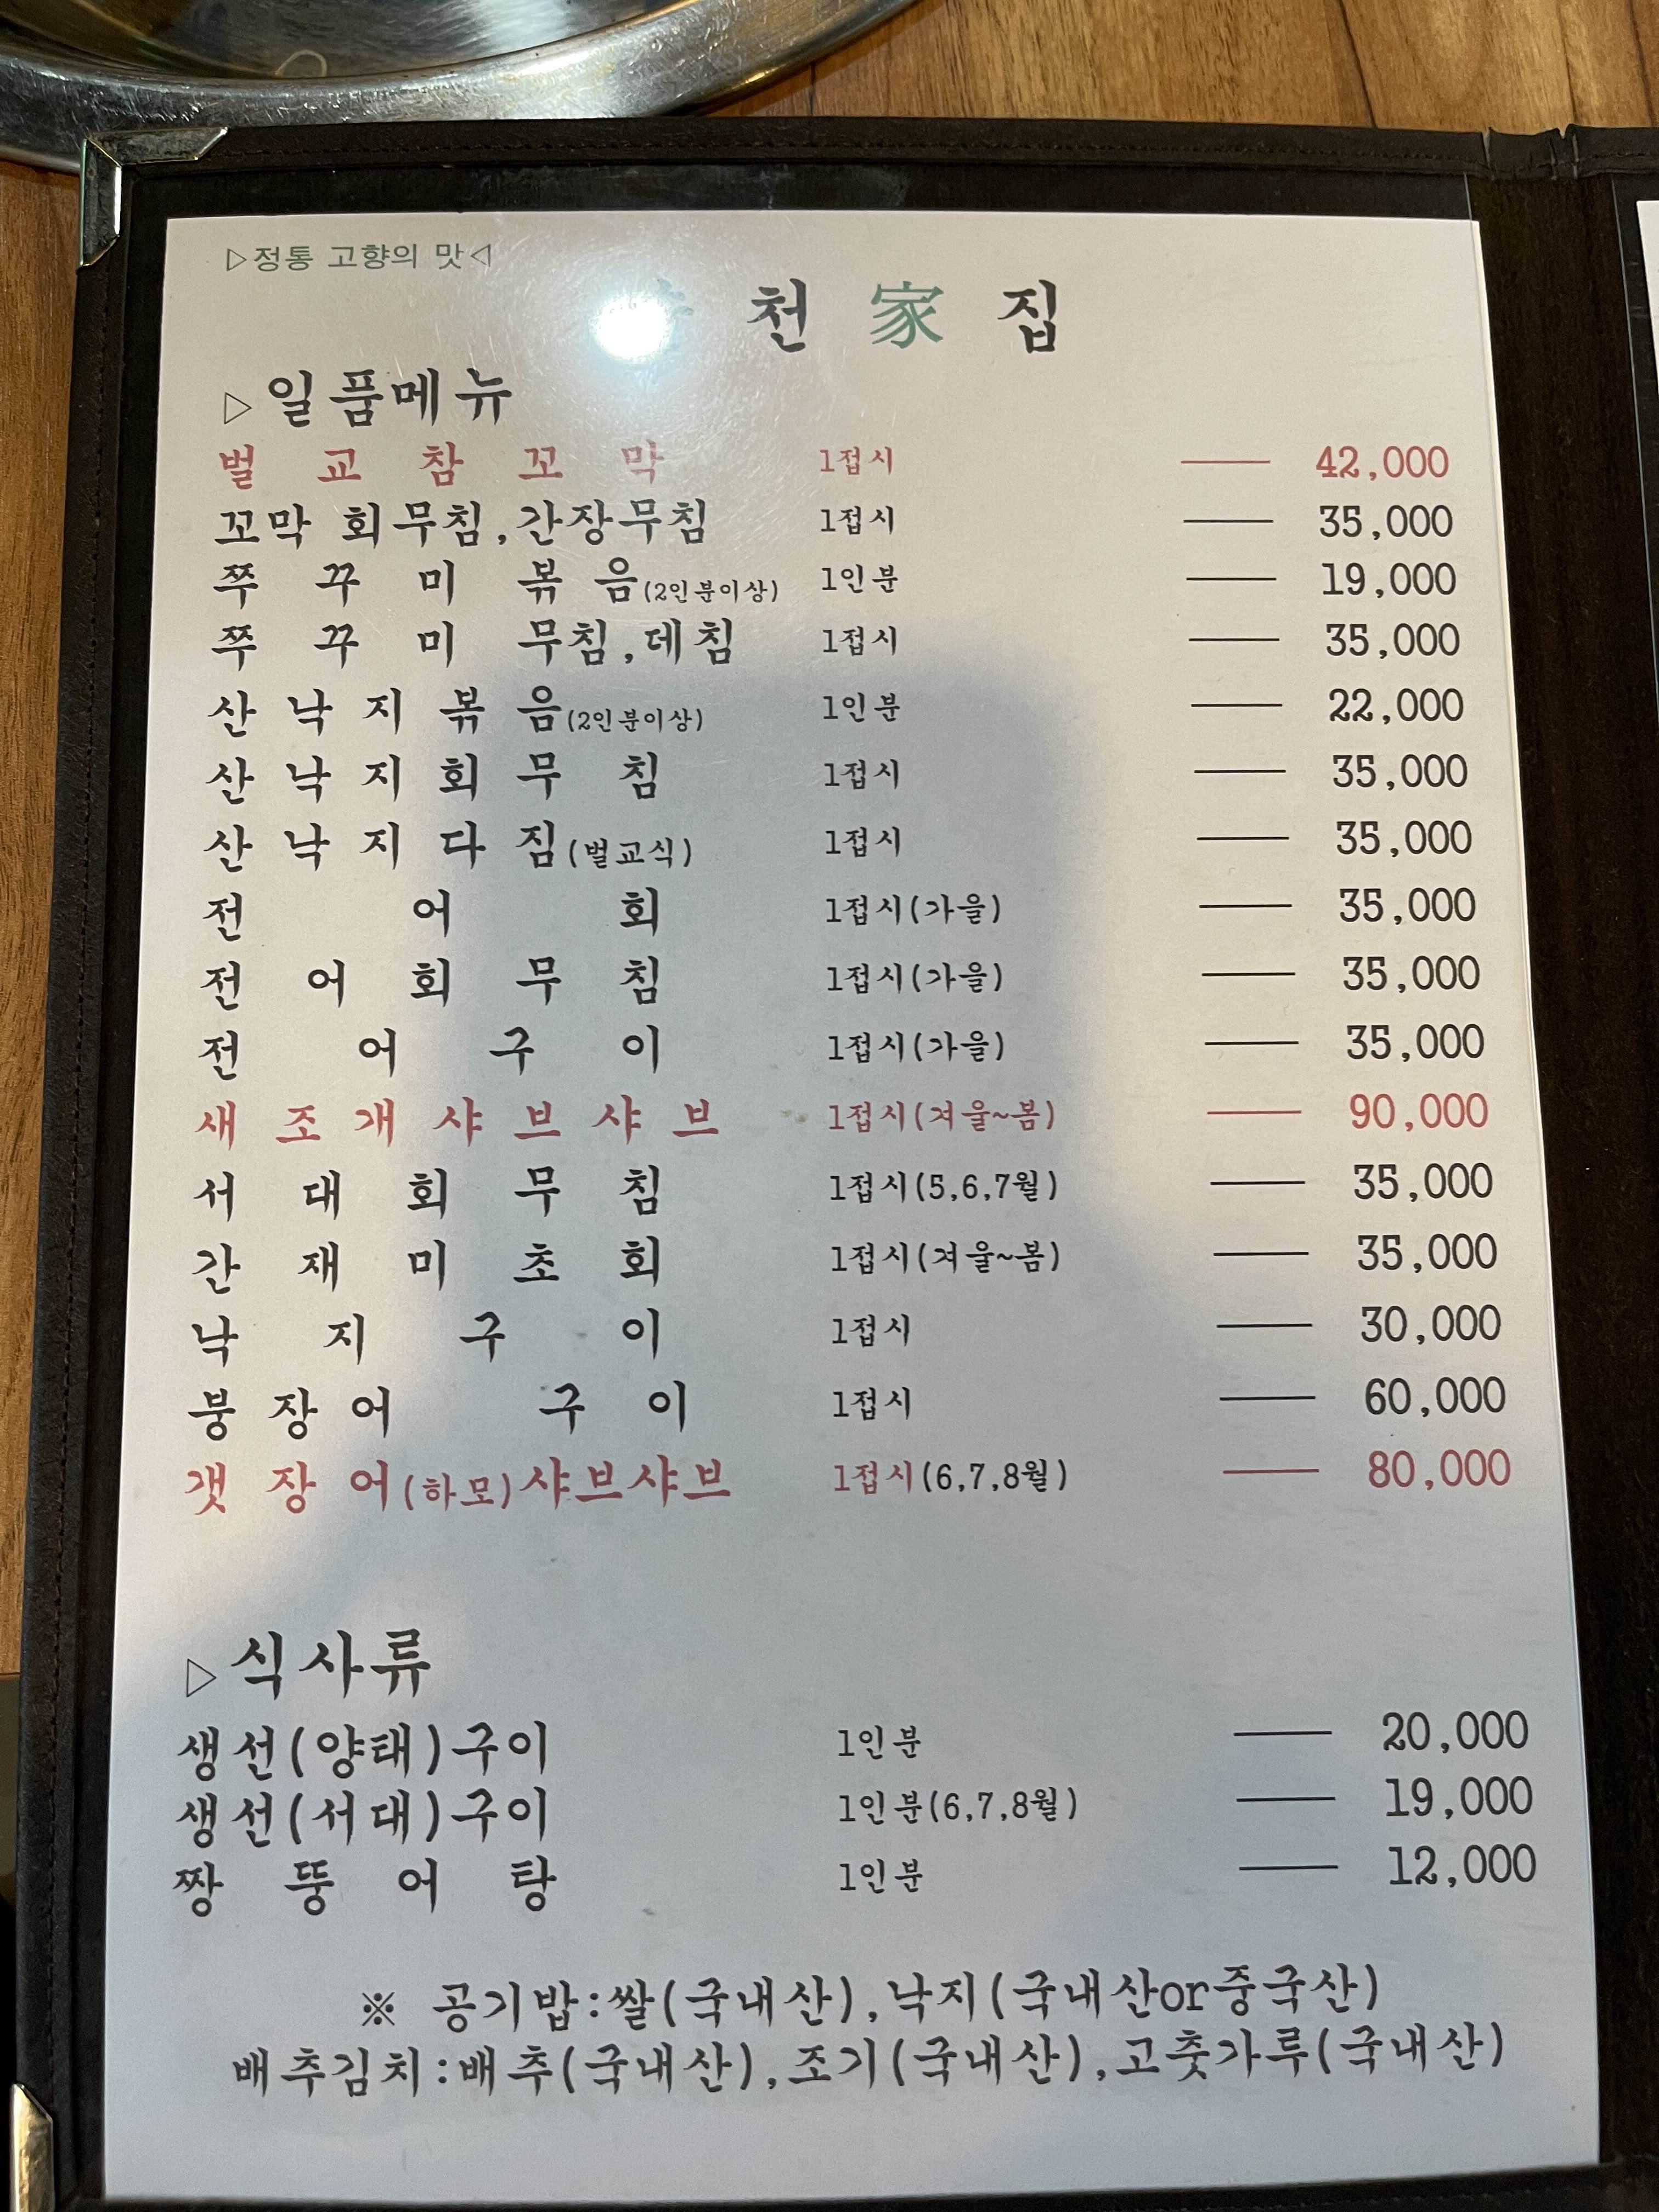 ▷정통 고향의 맛◁
천 家 집
▷일품메뉴
벌교참꼬막 1접시 — 42,000
꼬막 회무침,간장무침 1접시 — 35,000
쭈꾸미볶음(2인분이상) 1인분 — 19,000
쭈꾸미 무침,데침 1접시 — 35,000
산낙지볶음(2인분이상) 1인분 — 22,000
산낙지회무침 1접시 — 35,000
산낙지다짐(벌교식) 1접시 — 35,000
전어회 1접시(가을) — 35,000
전어회무침 1접시(가을) — 35,000
전어구이 1접시(가을) — 35,000
새조개샤브샤브 1접시(겨울~봄) — 90,000
서대회무침 1접시(5,6,7월) — 35,000
간재미초회 1접시(겨울~봄) — 35,000
낙지구이 1접시 — 30,000
붕장어 구이 1접시 — 60,000
갯장어(하모)샤브샤브 1접시(6,7,8월) — 80,000
▷식사류
생선(양태)구이 1인분 — 20,000
생선(서대)구이 1인분(6,7,8월) — 19,000
짱뚱어탕 1인분 — 12,000
※ 공기밥:쌀(국내산),낙지(국내산or중국산)
배추김치:배추(국내산),조기(국내산),고춧가루(국내산)